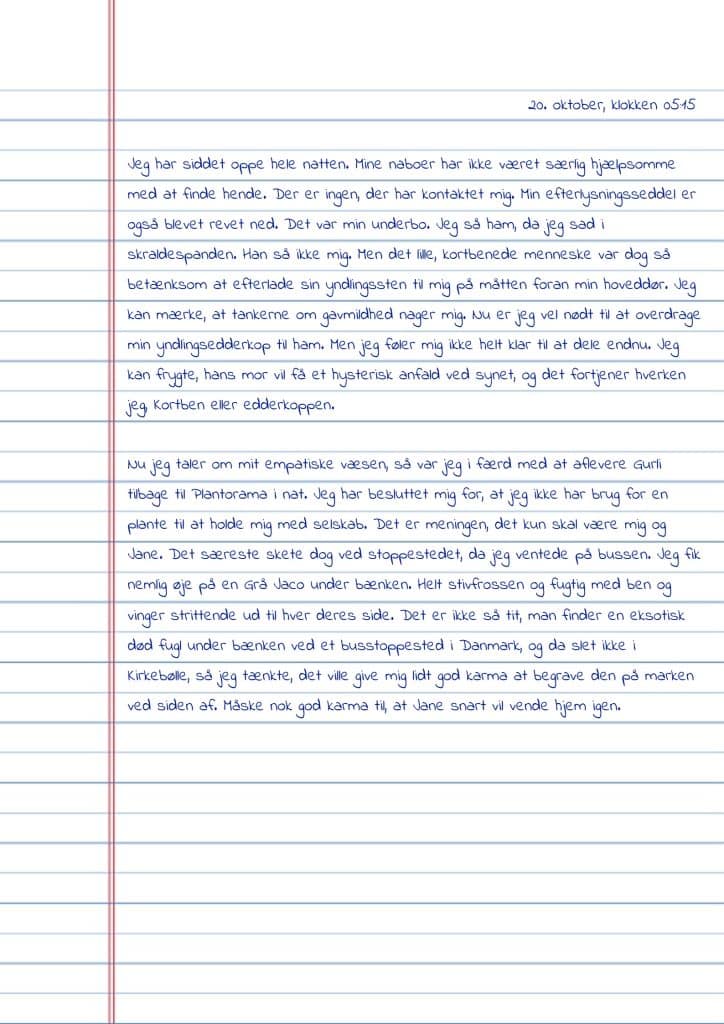 20. oktober, klokken 0515
Jeg har siddet oppe hele natten. Mine naboer har ikke været særlig hjælpsomme
med at finde hende. Der er ingen, der har kontaktet mig. Min efterlysningsseddel er
også blevet revet ned. Det var min underbo. Jeg så ham, da jeg sad i
skraldespanden. Han så ikke mig. Men det lille, kortbenede menneske var dog så
betænksom at efterlade sin yndlingssten til mig på måtten foran min hoveddør. Jeg
kan mærke, at tankerne om gavmildhed nager mig. Nu er jeg vel nødt til at overdrage
min yndlingsedderkop til ham. Men jeg føler mig ikke helt klar til at dele endnu. Jeg
kan frygte, hans mor vil få et hysterisk anfald ved synet, og det fortjener hverken
jeg, Kortben eller edderkoppen.
Nu jeg taler om mit empatiske væsen, så var jeg i færd med at aflevere Gurli
tilbage til Plantorama i nat. Jeg har besluttet mig for, at jeg ikke har brug for en
plante til at holde mig med selskab. Det er meningen, det kun skal være mig og
Jane. Det særeste skete dog ved stoppestedet, da jeg ventede på bussen. Jeg fik
nemlig øje på en Grå Jaco under bænken. Helt stivfrossen og fugtig med ben og
vinger strittende ud til hver deres side. Det er ikke så tit, man finder en eksotisk
død fugl under bænken ved et busstoppested i Danmark, og da slet ikke i
Kirkebølle, så jeg tænkte, det ville give mig lidt god karma at begrave den på marken
ved siden af. Måske nok god karma til, at Jane snart vil vende hjem igen.